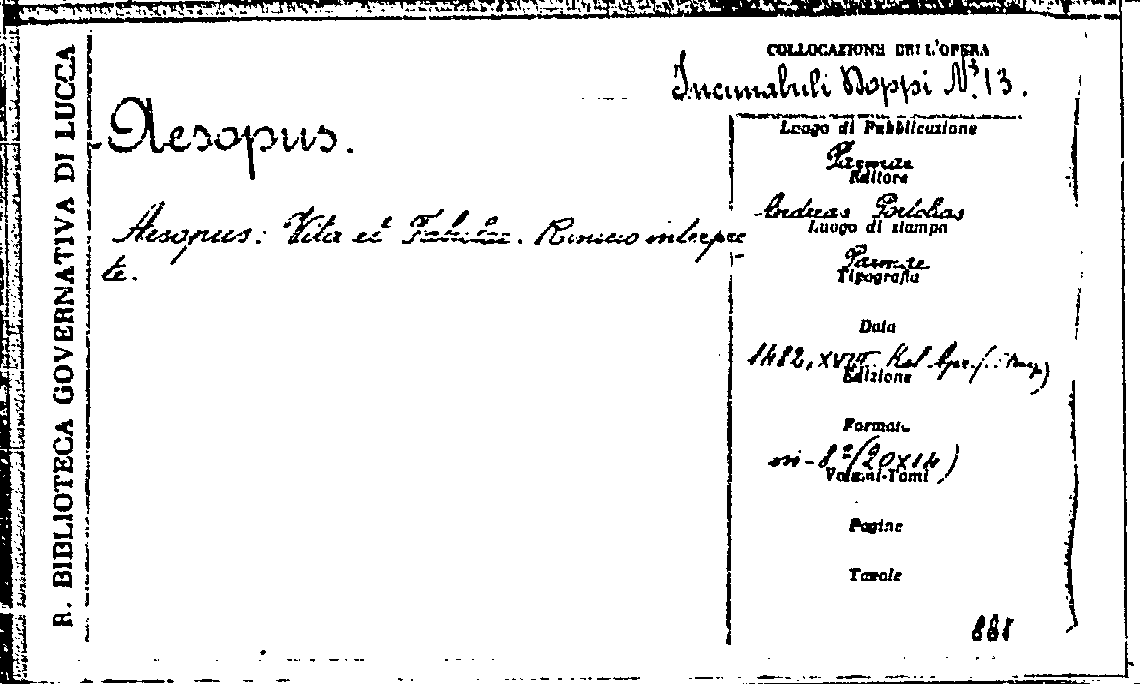 R. BIBLIOTECA GOVERNATIVA DI LUCCA
COLLOCAZIONE DELL'OPERA
Incunabuli Doppi N.º 13.
Aesopus.
Aesopus: Vita et Fabulae. Rinucio interpre
te.
Luogo di Pubblicazione
Parmae
Editore
Andreas Portilias
Luogo di stampa
Parmae
Tipografia
Data
1482, XVII Kal. Apr.
Edizione
Formato
in-8º (20x14)
Volumi-Tomi
Pagine
Tavole